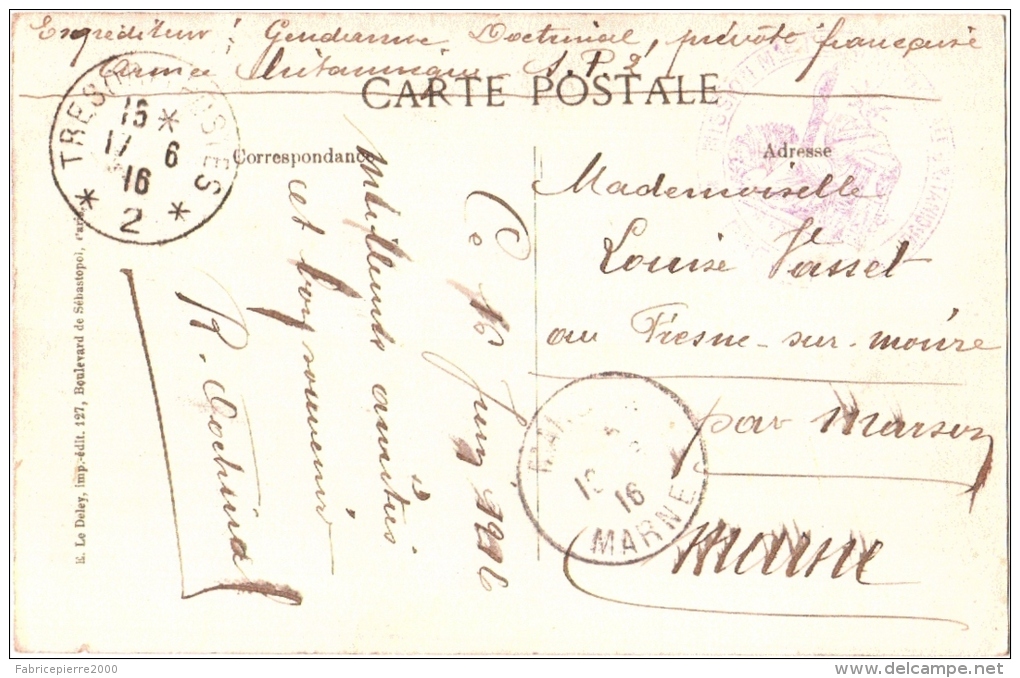 Expéditeur : Gendarme Doctrinal, prévôté française
Armée Britannique S.P 2
CARTE POSTALE
Correspondance
Adresse
TRESOR POSTES
15 *
17 6
16
* 2 *
MISSION M
Ce 16 Juin 1916
Meilleures amitiés
et bon souvenir
R. Doctrinal
Mademoiselle
Louise Vasset
au Fresne-sur-moivre
par Marson
Marne
MA
16
MARNE
E. Le Deley, imp.-édit. 127, Boulevard de Sébastopol, Paris.
Fabricepierre2000
www.delcampe.net